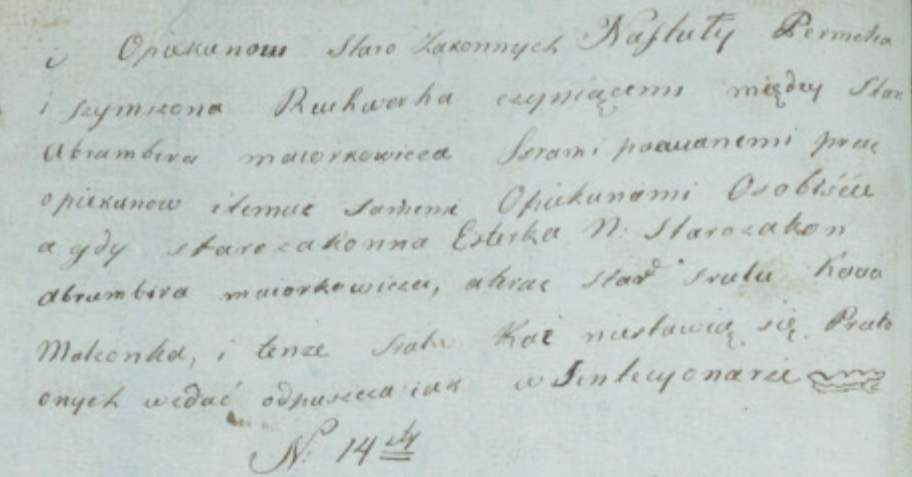 i Opiekunow Staro Zakonnych Naftuły Permetra
i Szymszona Ruchwerha czyniącemi między Star
Abrambira maiorkowicza Srami pozwanemi prze
opiekunow itemuż samemi Opiekunami Osobiście
a gdy starozakonna Esterka N: Starozakon
Abrambira maiorkowicza, akże Star Srula Kaca
Małconka, i tenże Srul Kac niestawią się Prato
onych wzdać odpuszcza iak w Sentecyonarze
N: 14ty